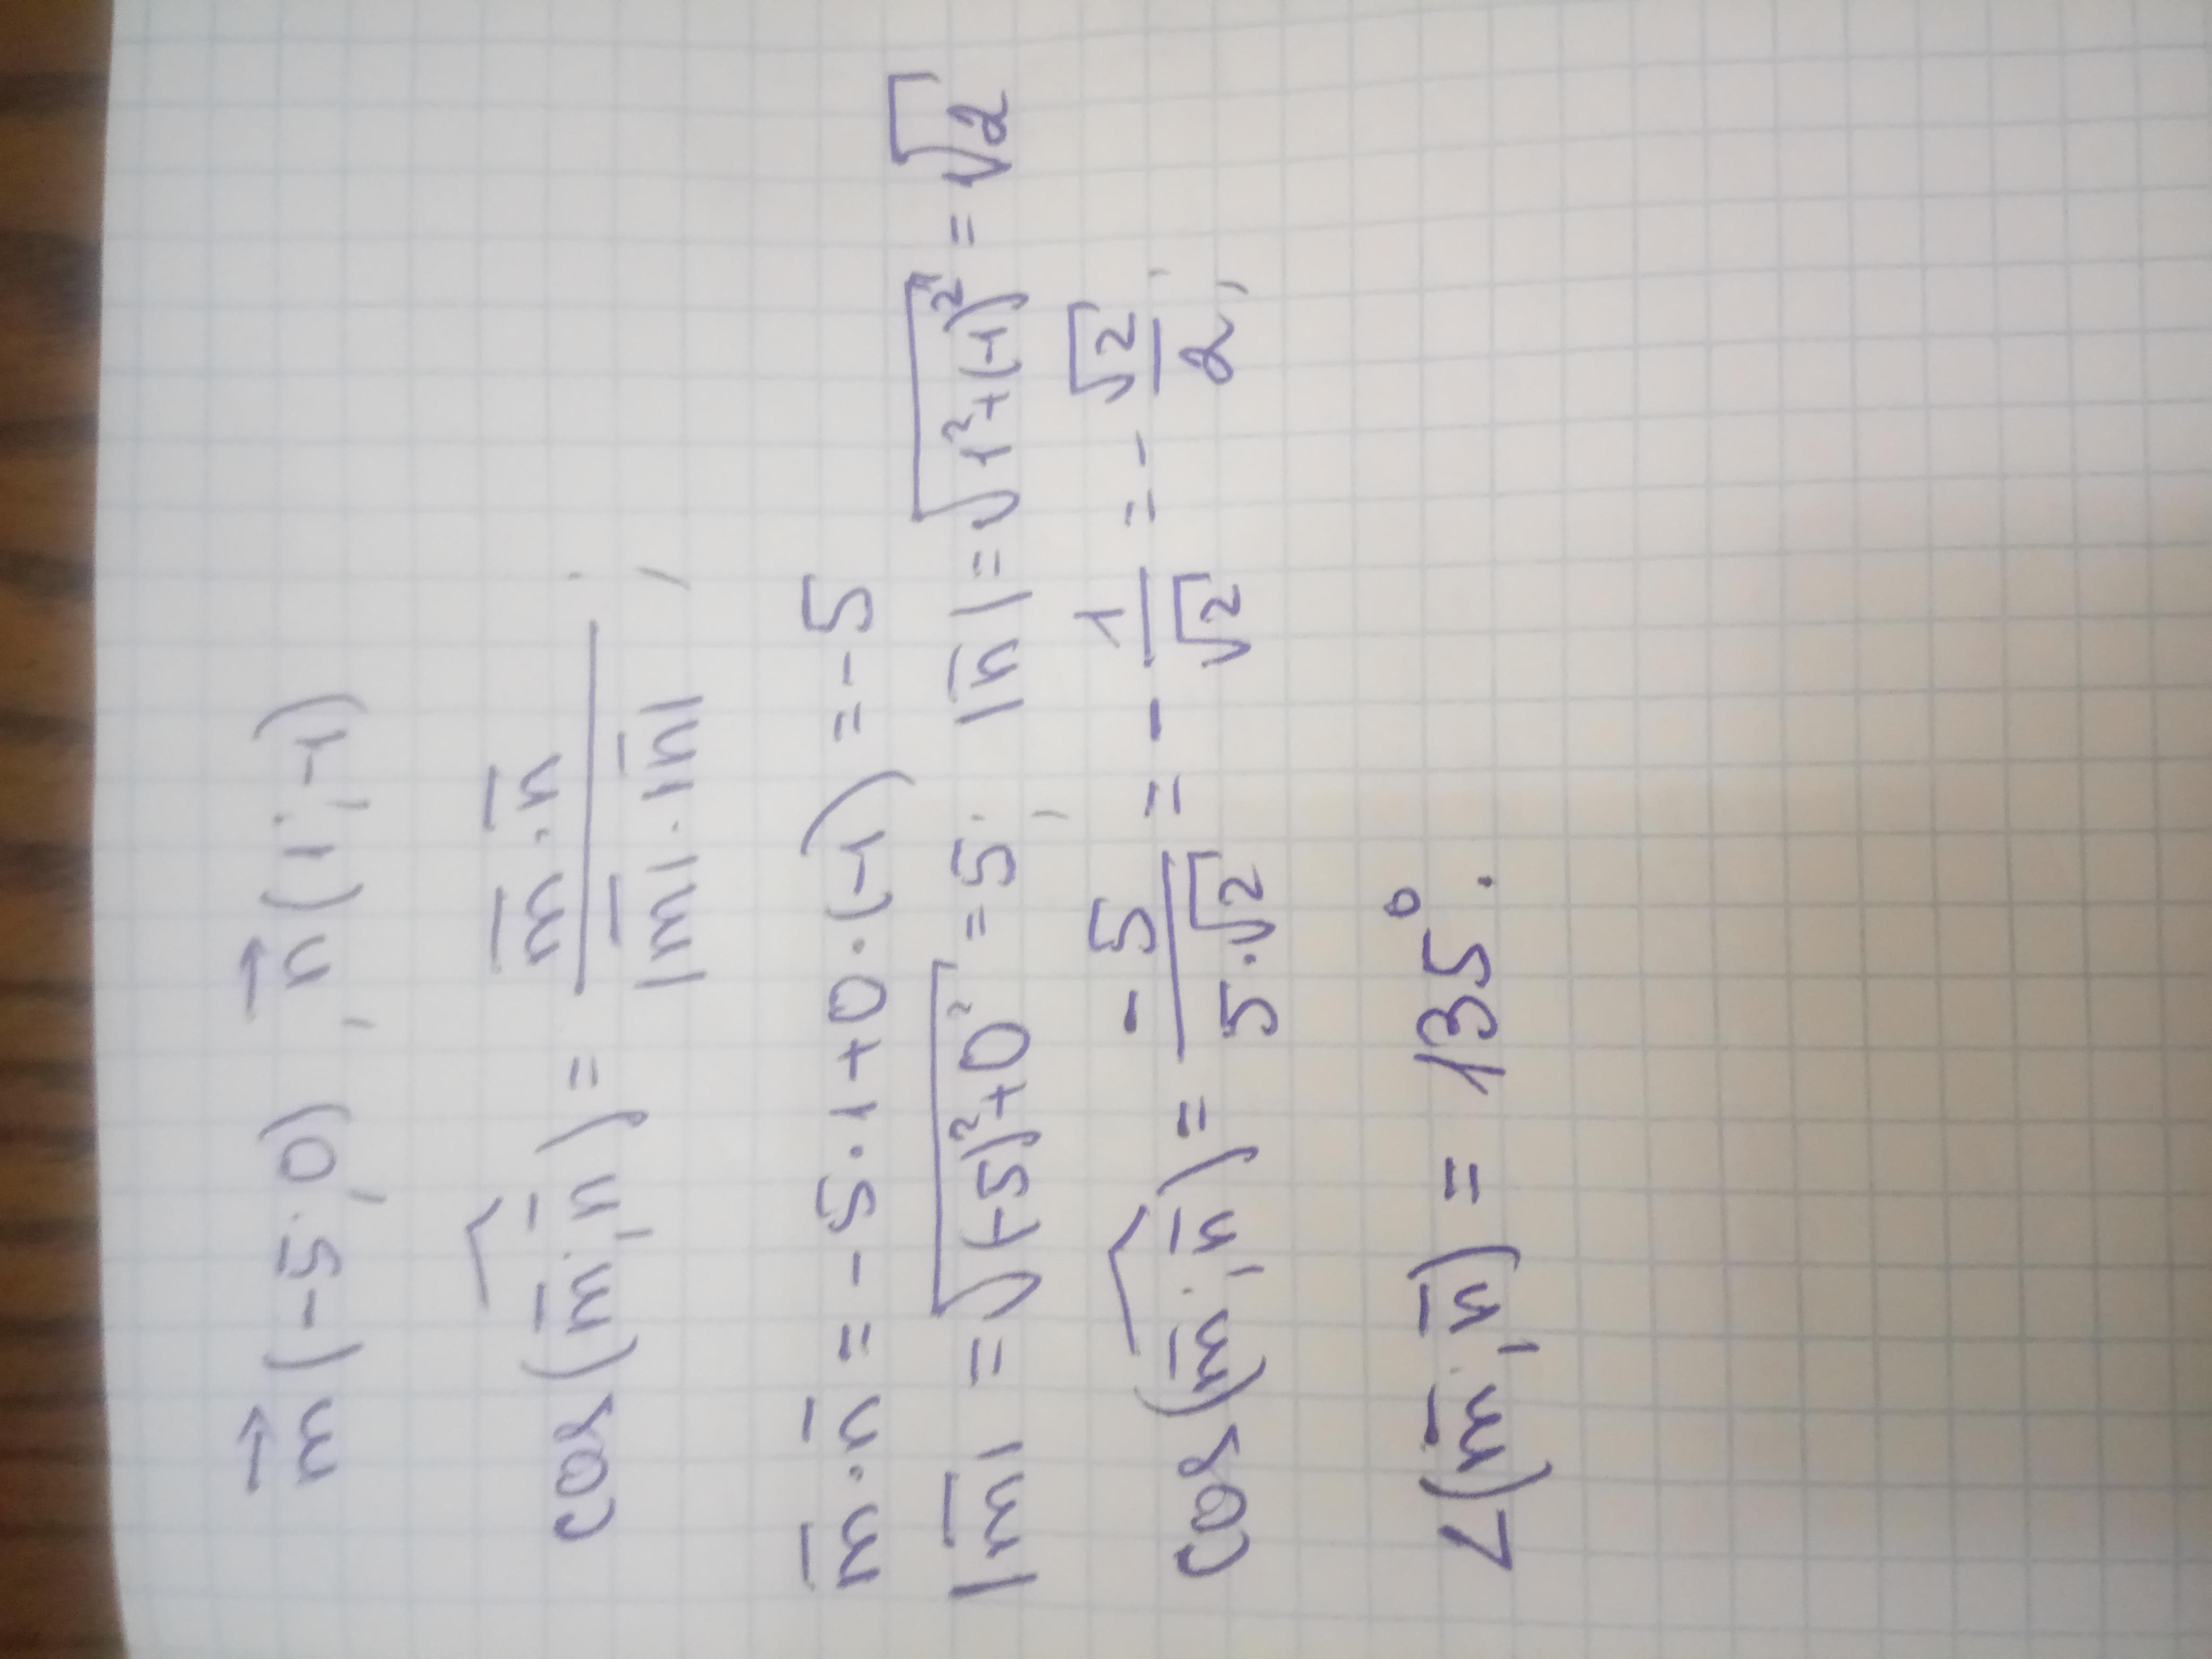 m⃗(-5; 0), n⃗(1; -1)
cos(m̅; n̅) = m̅·n̅ / |m̅|·|n̅| ;
m̅·n̅ = -5·1+0·(-1) = -5
|m̅| = √((-5)²+0²) = 5; |n̅| = √(1²+(-1)²) = √2
cos(m̅; n̅) = -5 / 5·√2 = - 1/√2 = - √2/2;
∠(m̅; n̅) = 135°.